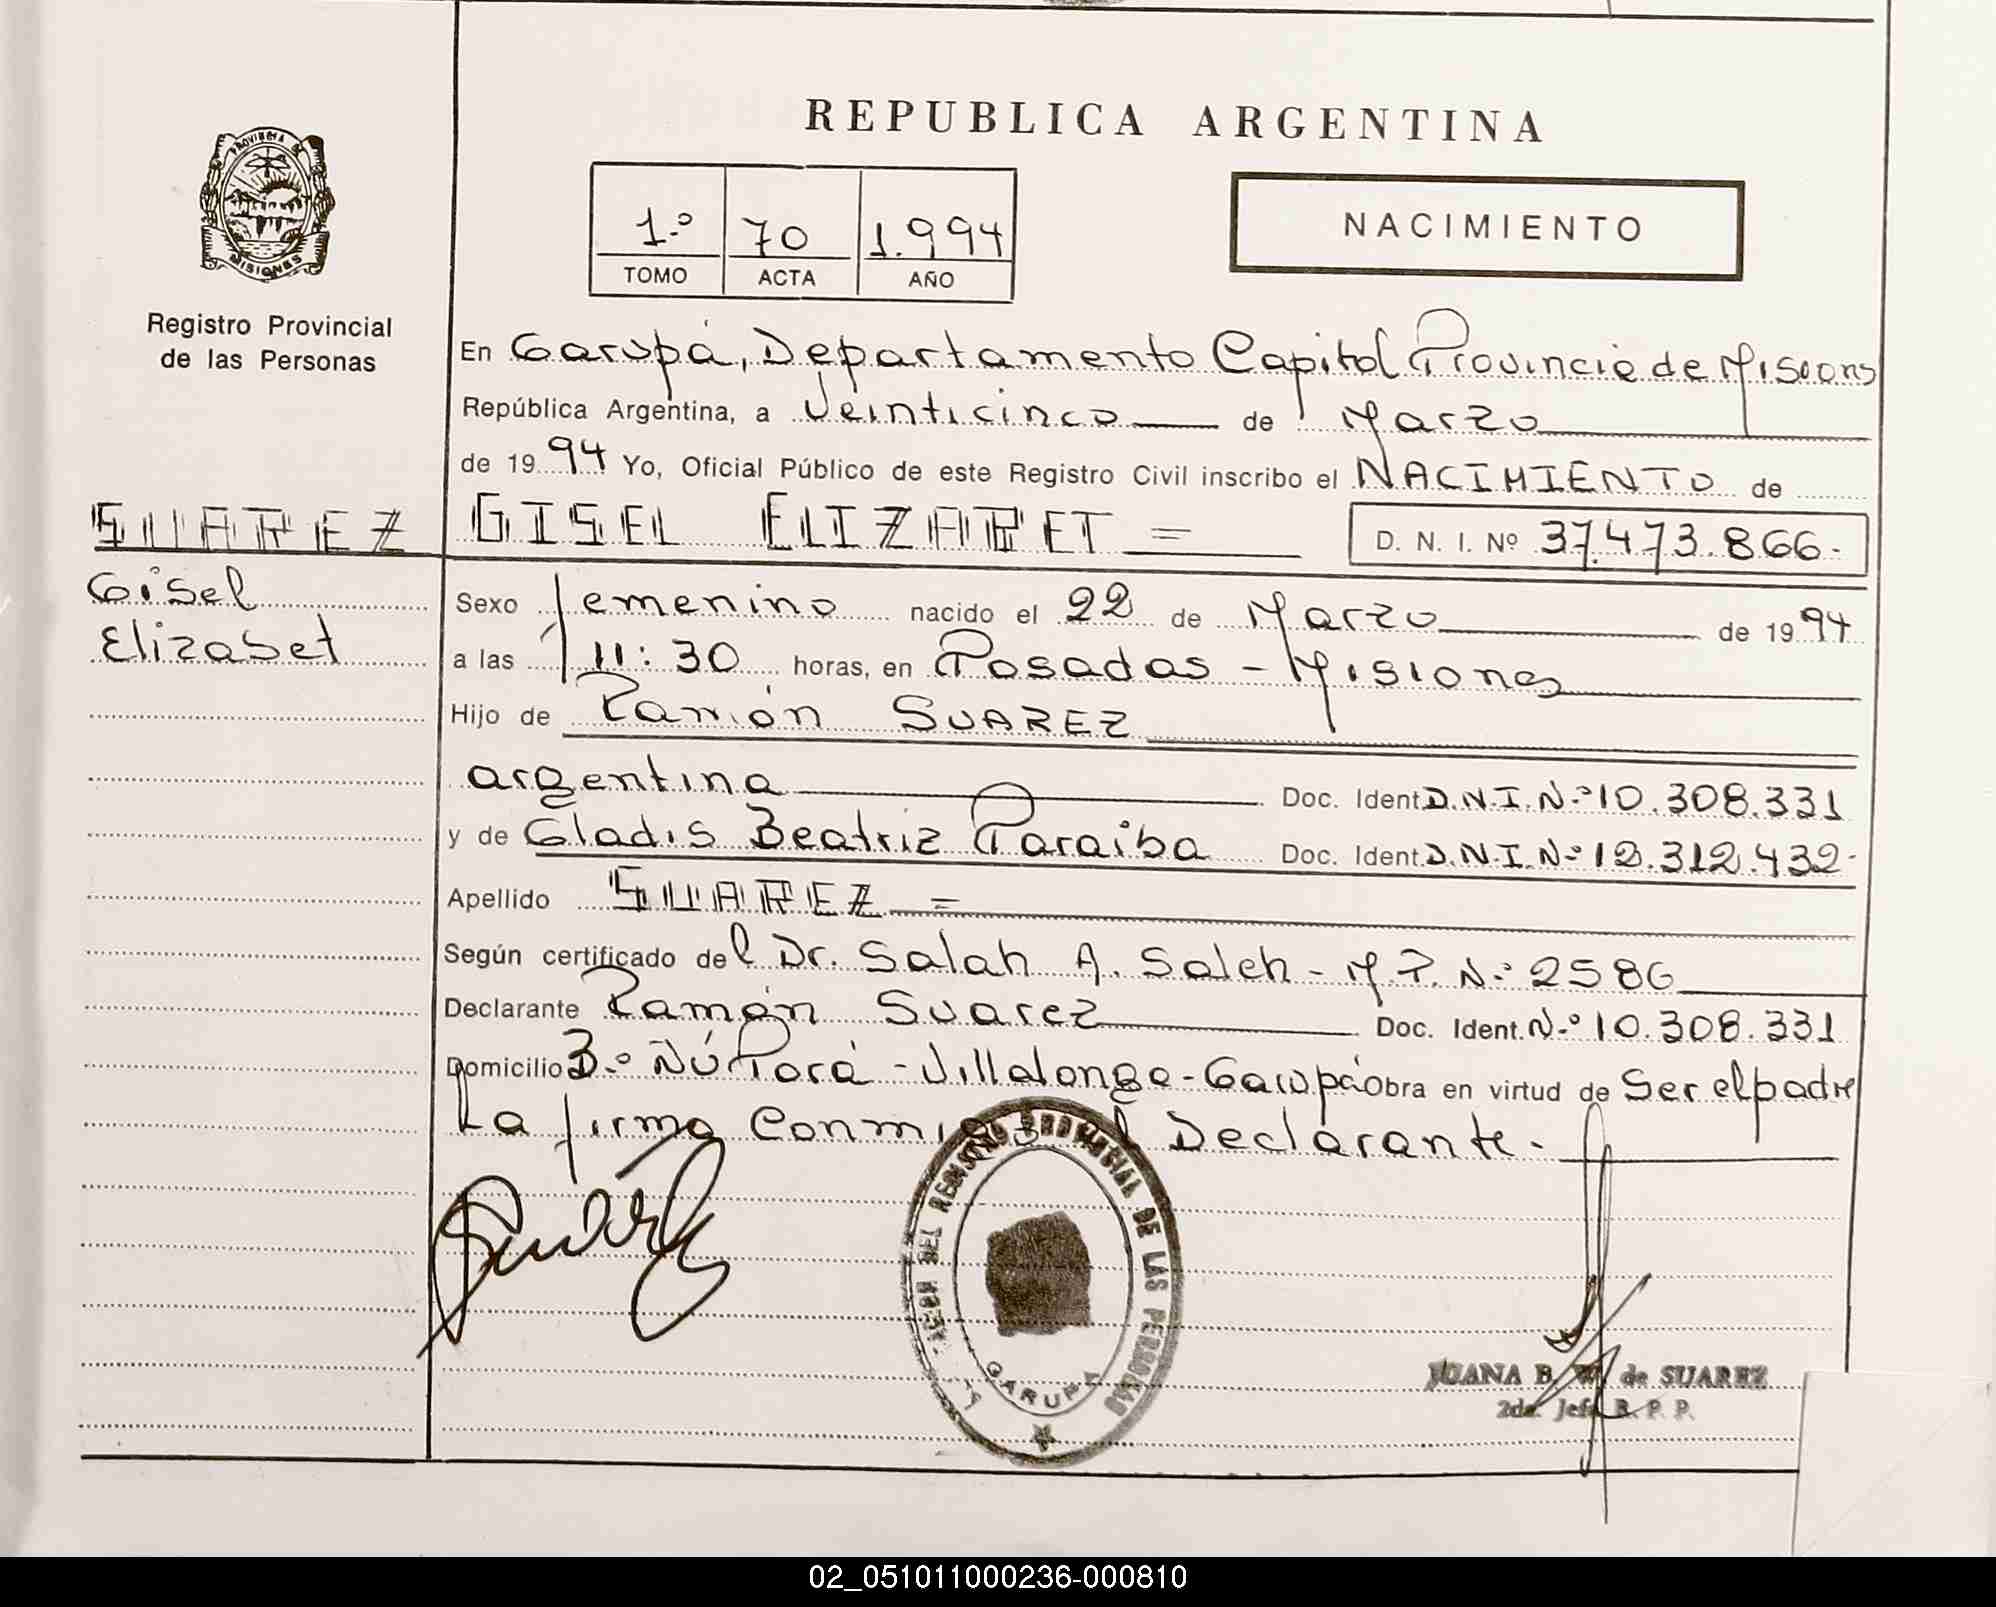 REPUBLICA ARGENTINA
PROVINCIA DE MISIONES
Registro Provincial
de las Personas
1.º 70 1.994
TOMO ACTA AÑO
NACIMIENTO
En Garupá, Departamento Capital Provincia de Misiones
República Argentina, a Veinticinco de Marzo
de 1994 Yo, Oficial Público de este Registro Civil inscribo el NACIMIENTO de
SUAREZ GISEL ELIZABET = D. N. I. Nº 37.473.866.-
Gisel
Elizabet
Sexo femenino nacido el 22 de Marzo de 1994
a las 11:30 horas, en Posadas - Misiones
Hijo de Ramón SUAREZ
argentina Doc. Ident. D.N.I.N.º 10.308.331
y de Gladis Beatriz Paraiba Doc. Ident. D.N.I.N.º 12.312.432-
Apellido SUAREZ =
Según certificado del Dr. Salah A. Saleh - M.P. N.º 2586
Declarante Ramón Suarez Doc. Ident. N.º 10.308.331
Domicilio B.º Ñú Porá - Villalonga - Garupá Obra en virtud de Ser el padre
La firma Conmigo el Declarante.-
Suárez
REGISTRO PROVINCIAL DE LAS PERSONAS
GARUPA
JUANA B. de SUAREZ
2da. Jefe R. P. P.
02_051011000236-000810